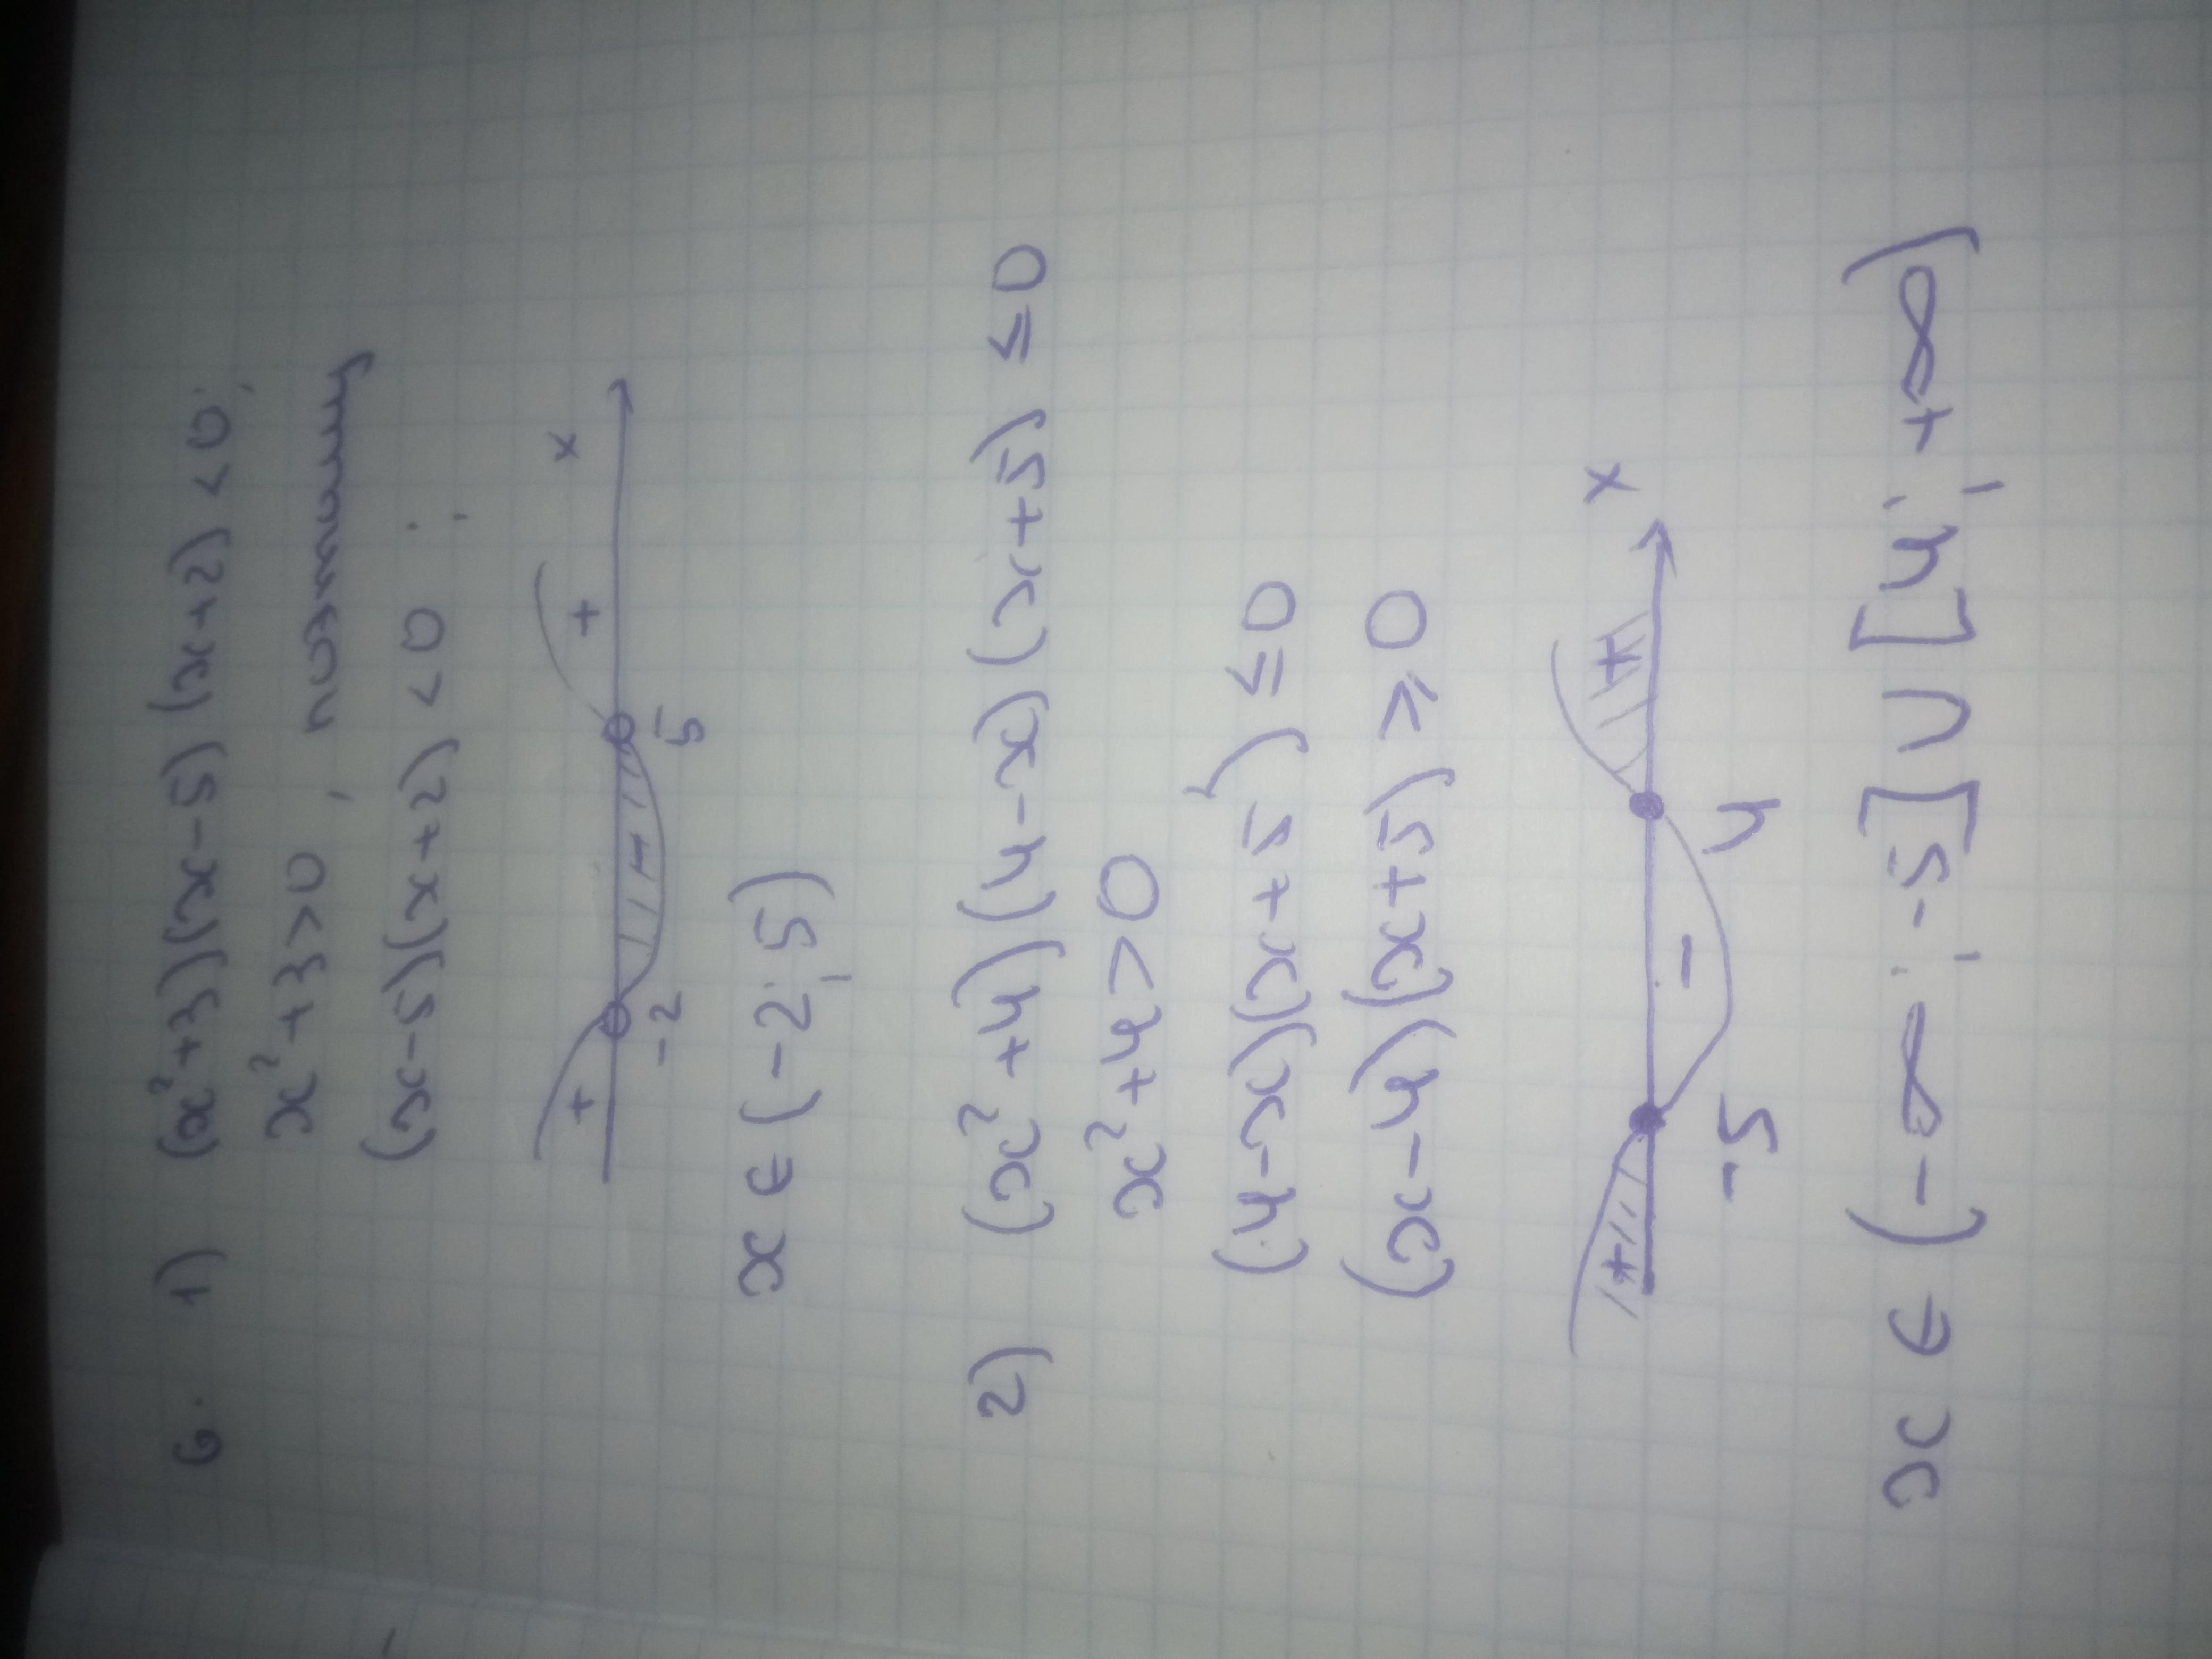 6. 1) (x²+3)(x-5)(x+2)<0;
x²+3>0, поэтому
(x-5)(x+2)<0;
+ - + x
-2 5
x ∈ (-2; 5)
2) (x²+4)(4-x)(x+5) ≤ 0
x²+4>0
(4-x)(x+5) ≤ 0
(x-4)(x+5) ≥ 0
+ - + x
-5 4
x ∈ (-∞; -5] ∪ [4; +∞)